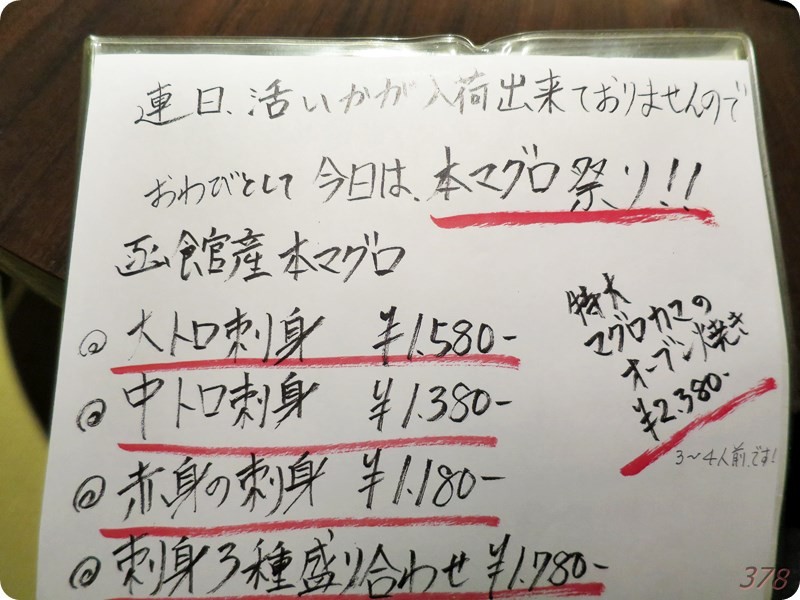 連日、活いかが入荷出来ておりませんので
おわびとして 今日は、本マグロ祭り!!
函館産本マグロ
◎ 大トロ刺身 ¥1.580-
◎ 中トロ刺身 ¥1.380-
◎ 赤身の刺身 ¥1.180-
◎ 刺身3種盛り合わせ ¥1.780-
特大
マグロカマの
オーブン焼き
¥2.380-
3〜4人前です!
378